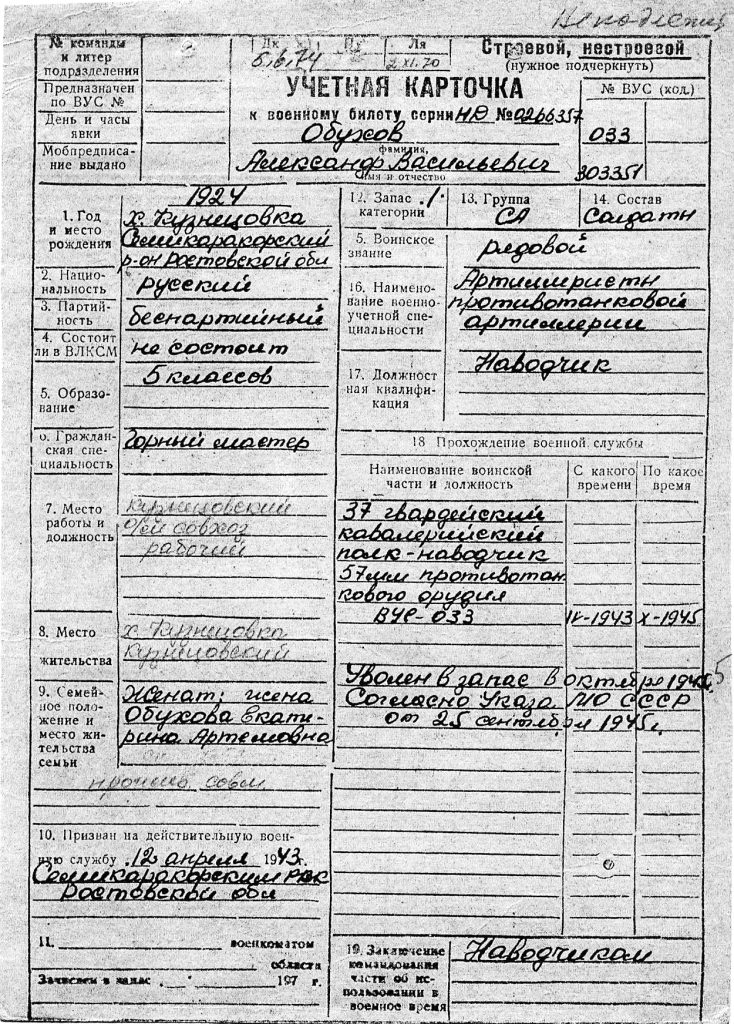 № команды
и литер
подразделения
Предназначен
по ВУС №
День и часы
явки
Мобпредписа-
ние выдано
Дк
5.6.74
Ля
2 XI.70
Строевой, нестроевой
(нужное подчеркнуть)
УЧЕТНАЯ КАРТОЧКА
к военному билету серии НД № 0266357
Обухов
фамилия,
Александр Васильевич
имя и отчество
№ ВУС (код.)
033
303351
1. Год
и место
рождения
1924
х. Кузнецовка
Семикаракорский
р-он Ростовской обл
2. Нацио-
нальность
русский
3. Партий-
ность
беспартийный
4. Состоит
ли в ВЛКСМ
не состоит
5. Образо-
вание
5 классов
6. Граждан-
ская спе-
циальность
Горный мастер
7. Место
работы и
должность
Кузнецовский
совхоз
рабочий
8. Место
жительства
х. Кузнецовка
Кузнецовский
9. Семей-
ное поло-
жение и
место жи-
тельства
семьи
Женат: жена
Обухова Екате-
рина Артемовна
10. Призван на действительную воен-
ную службу 12 апреля 1943 г.
Семикаракорским РВК
Ростовской обл
11. военкоматом
области
Зачислен в запас 197 г.
12. Запас 1
категории
13. Группа
СА
14. Состав
Солдаты
5. Воинское
звание
рядовой
16. Наимено-
вание военно-
учетной спе-
циальности
Артиллеристы
противотанковой
артиллерии
17. Должност
ная квалифи-
кация
Наводчик
18 Прохождение военной службы
Наименование воинской
части и должность
С какого
времени
По какое
время
37 гвардейский
кавалерийский
полк-наводчик
57мм противотан
кового орудия
ВУС-033 IV-1943 X-1945
Уволен в запас в октябре 1945
Согласно Указа МО СССР
от 25 сентября 1945г.
19. Заключение
командования
части об ис-
пользовании в
военное время
Наводчиком